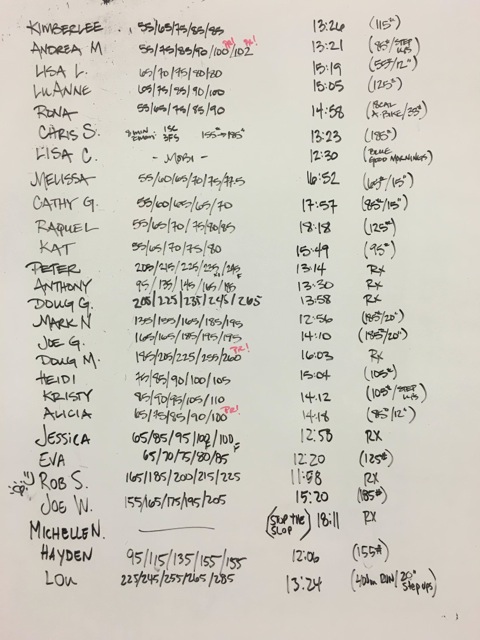 KIMBERLEE 55/65/75/85/85 13:26 (115#)
ANDREA M 55/75/85/90/100/102 PR! PR! 13:21 (85#/STEP UPS)
LISA L. 65/70/75/80/80 15:19 (55#/12")
LUANNE 65/75/85/90/100 15:05 (125#)
RONA 55/65/75/85/90 14:58 (A-BIKE/35#)
CHRIS S. 8 MIN EMOM: 155#→185# 13:23 (185#)
LISA C. - MOBI - 12:30 (BLUE GOOD MORNINGS)
MELISSA 55/60/65/70/75/77.5 16:52 (65#/15")
CATHY G. 55/60/65/65/70 17:57 (85#/15")
RAQUEL 55/65/70/75/80/85 18:18 (125#)
KAT 55/65/70/75/80 15:49 (95#)
PETER 205/215/225/235/245 F 13:14 RX
ANTHONY 95/135/145/165/185 13:30 RX
DOUG G. 205/225/235/245/265 13:58 RX
MARK N 135/155/165/185/195 12:56 (185#/20")
JOE G. 165/165/185/195/195 14:10 (185#/20")
DOUG M. 195/205/225/255/260 PR! 16:03 RX
HEIDI 75/85/90/100/105 15:04 (105#)
KRISTY 85/90/95/105/110 14:12 (105#/STEP UPS)
ALICIA 65/75/85/90/100 PR! 14:18 (85#/12")
JESSICA 65/85/95/102/100 F 12:58 RX
EVA 65/70/75/80/85 F 12:20 (125#)
ROB S. 165/185/200/215/225 11:58 RX
JOE W. 155/165/175/195/205 15:20 (185#)
MICHELLE N. (STOP THE SLOP) 18:11 RX
HAYDEN 95/115/135/155/155 12:06 (155#)
LOU 225/245/255/265/285 13:24 (400m RUN/20" Step ups)